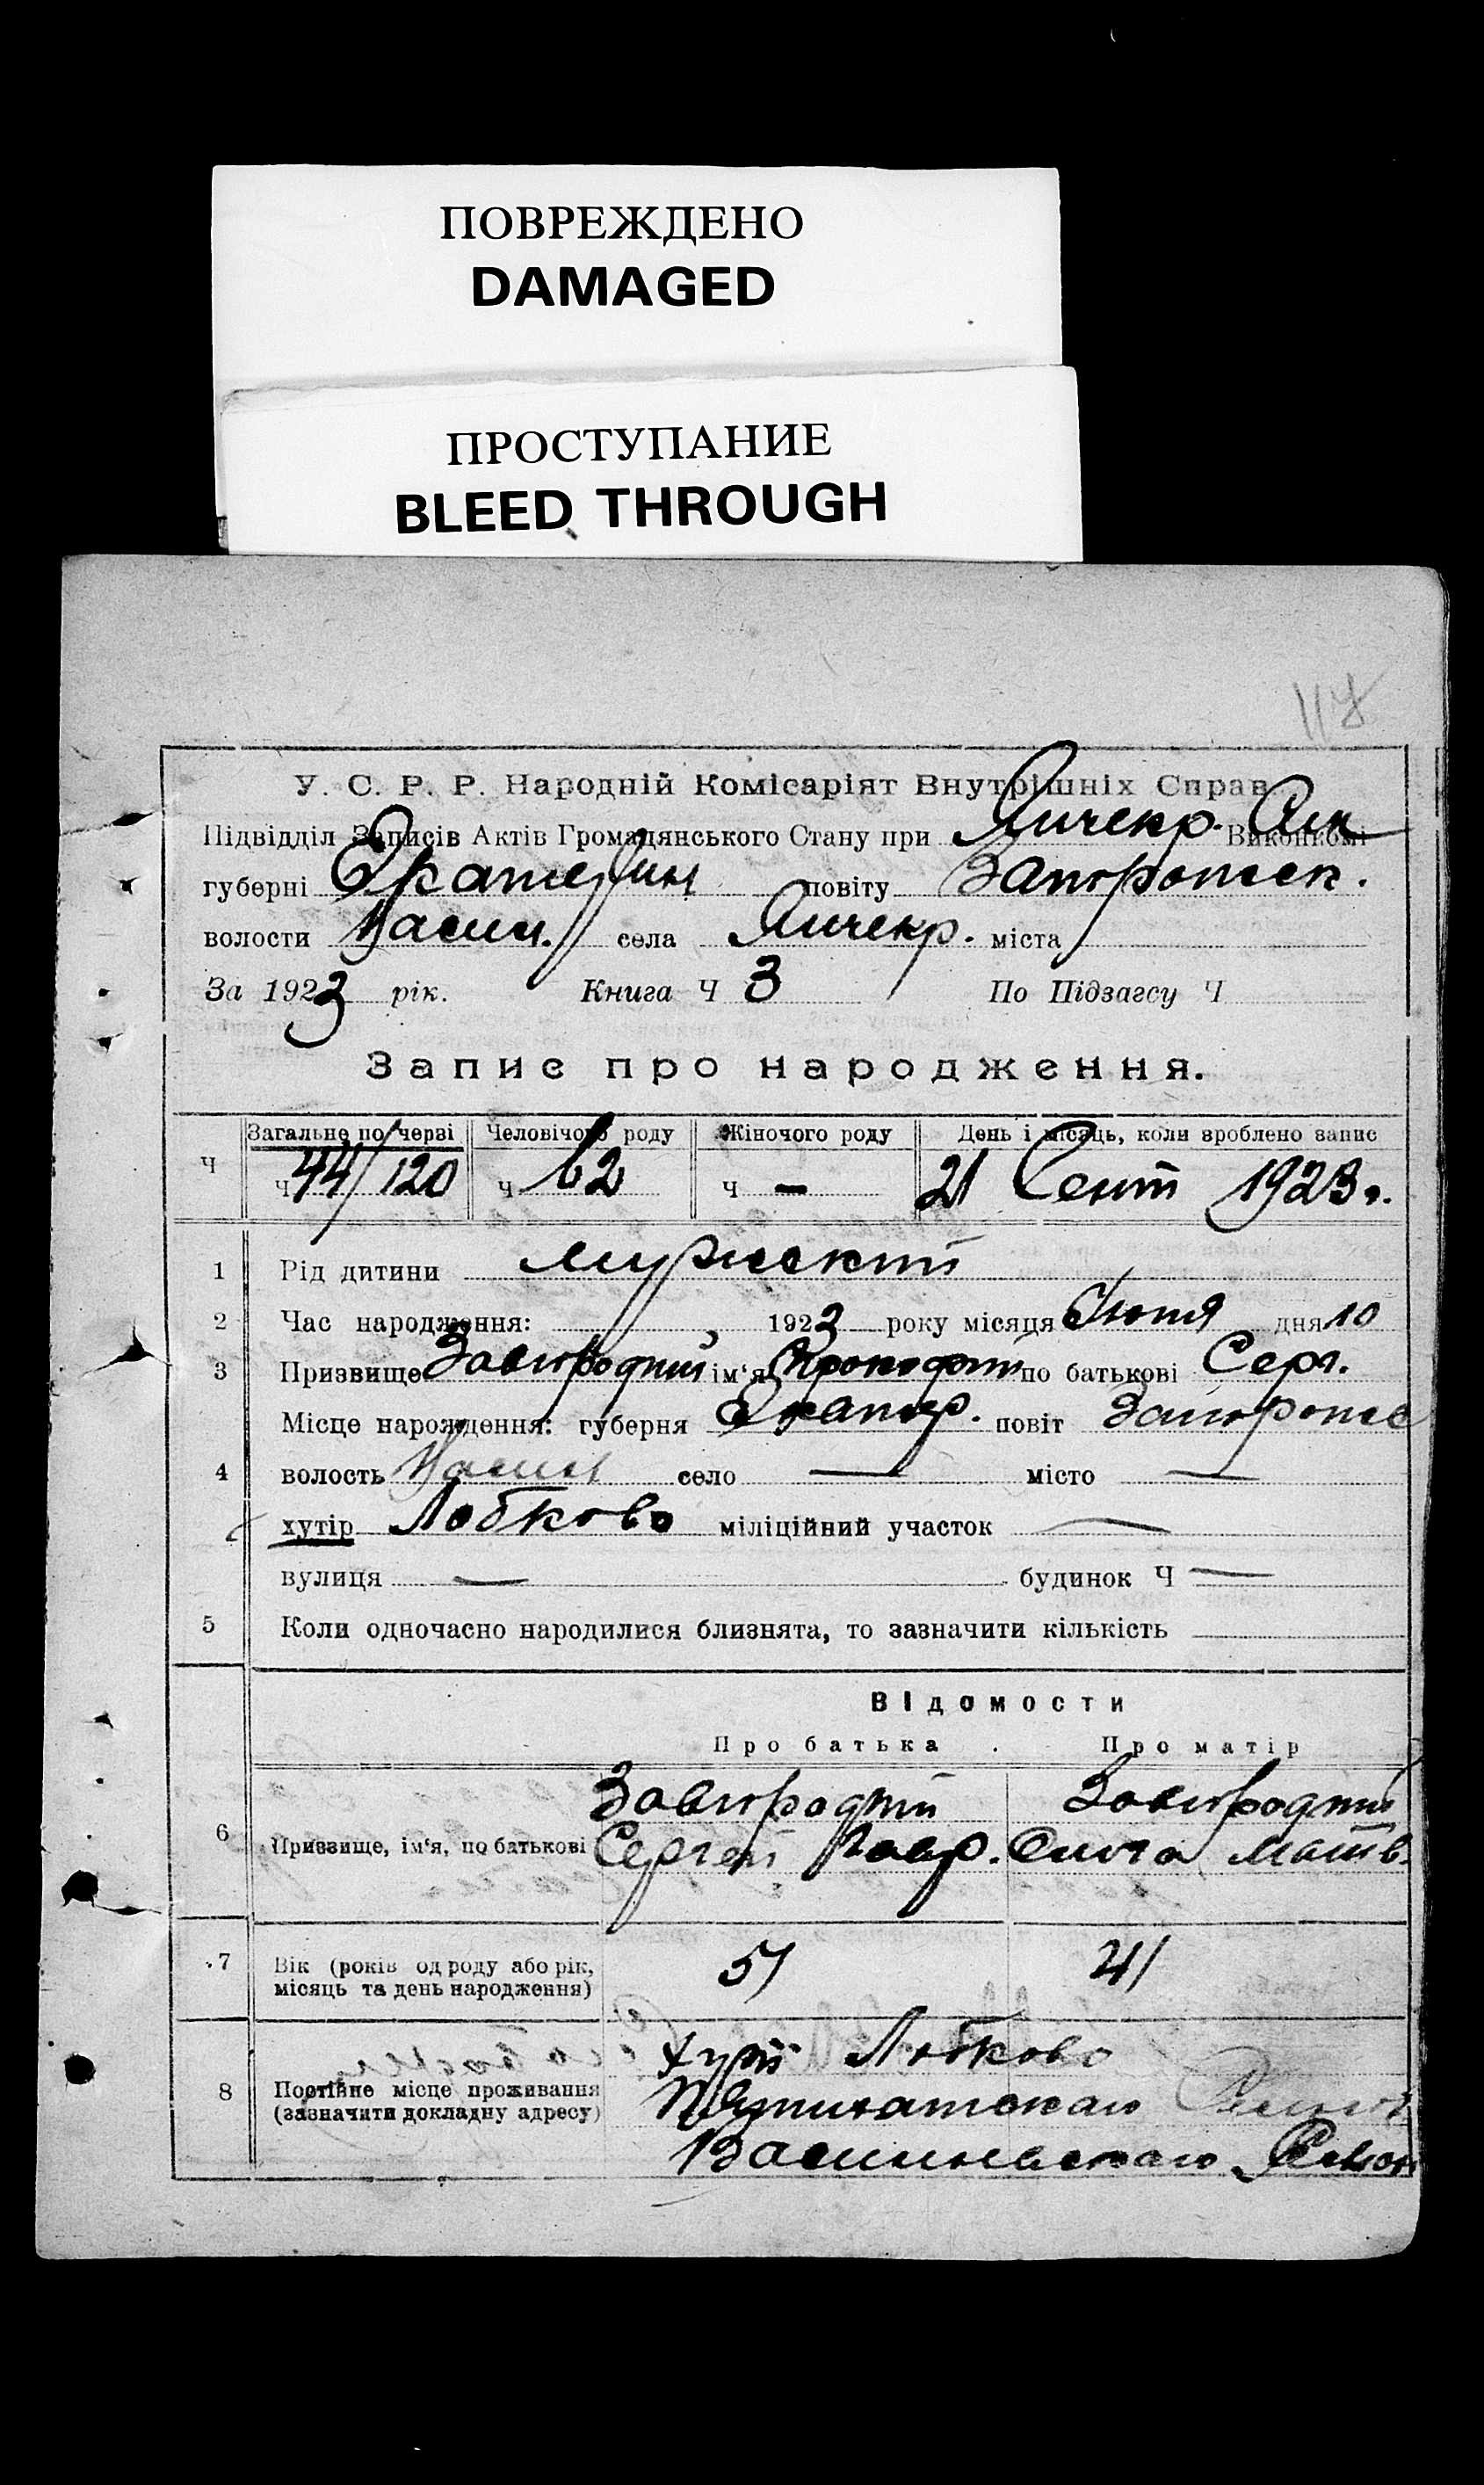 ПОВРЕЖДЕНО
DAMAGED
ПРОСТУПАНИЕ
BLEED THROUGH
117
У. С. Р. Р. Народній Комісаріят Внутрішніх Справ
Підвідділ Записів Актів Громадянського Стану при Янчекр. Виконкомі
губерні Екатерин повіту Запорожск.
волости Васин. села Янчекр. міста
За 1923 рік. Книга Ч 3 По Підзагсу Ч
Запис про народження.
Загальне по черзі Человічого роду Жіночого роду День і місяць, коли зроблено запис
Ч ч 44/120 ч 62 ч — 21 Сент 1923 г.
1 Рід дитини мужский
2 Час народження: 1923 року місяця дня 10
3 Призвище Завгородний ім'я Прокофий по батькові Серг.
Місце нарождення: губерня Екатер. повіт Запорожс
4 волость Васин село — місто —
хутір Любково міліційний участок —
вулиця — будинок Ч —
5 Коли одночасно народилися близнята, то зазначити кількість
Відомости
Про батька Про матір
Завгородний Завгородний
6 Призвище, ім'я, по батькові Сергей Гавр. Матв.
7 Вік (років од роду або рік, 51 41
місяць та день народження)
хут Любково
8 Постійне місце проживання
(зазначити докладну адресу)
Васиньевского Район